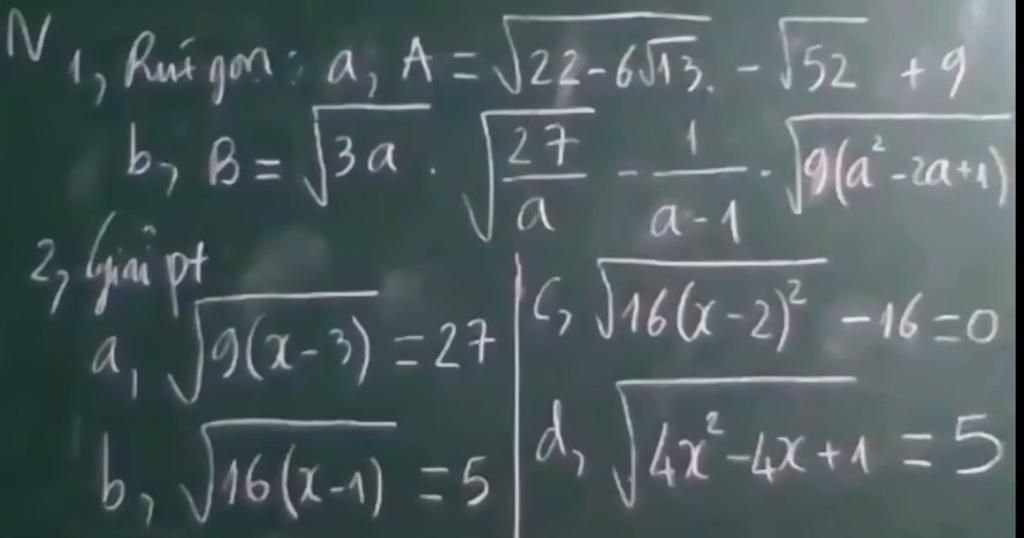 N
1, Rút gọn: a, A = √(22 - 6√13) - √52 + 9
b, B = √(3a) · √(27/a) - 1/(a - 1) · √(9(a² - 2a + 1))
2, Giải pt
a, √(9(x - 3)) = 27
b, √(16(x - 1)) = 5
c, √(16(x - 2)²) - 16 = 0
d, √(4x² - 4x + 1) = 5